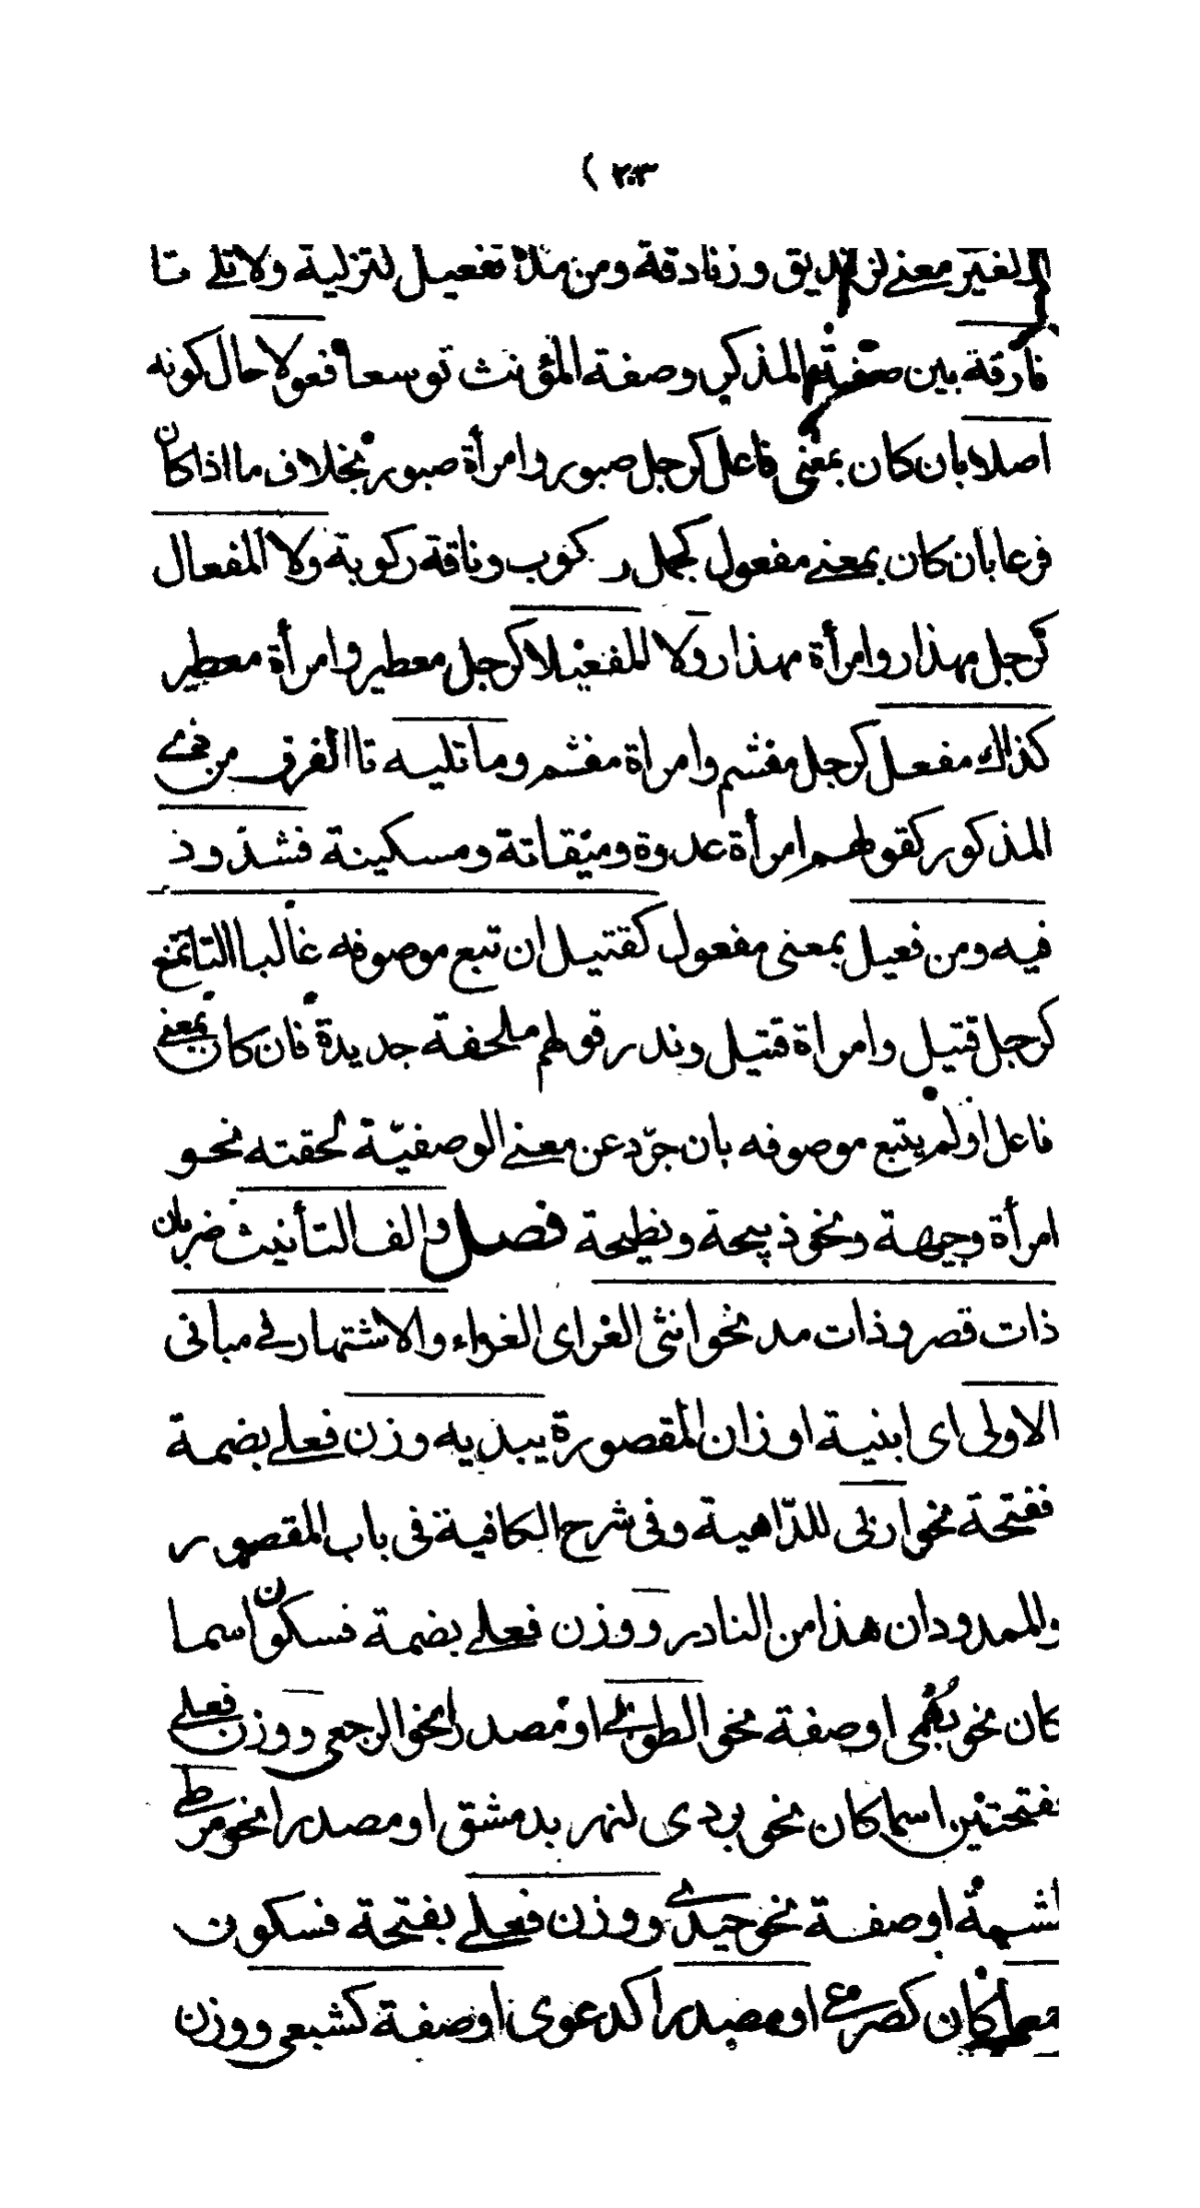 ( ٢٠٣
لغير معنى لزنديق وزنادقة ومن مدة تفعيل لتزلية ولا تلي تا
فارقة بين صفة المذكر وصفة المؤنث توسعا فعولا حال كونه
اصلا بان كان بمعنى فاعل كرجل صبور وامرأة صبور بخلاف ما اذا كان
فرعا بان كان بمعنى مفعول كجمل ركوب وناقة ركوبة ولا المفعال
كرجل مهذار وامرأة مهذار ولا المفعيلا كرجل معطير وامرأة معطير
كذاك مفعل كرجل مغشم وامراة مغشم وما تليه تا الفرق من ذي
المذكور كقولهم امرأة عدوة وميقاتة ومسكينة فشذوذ
فيه ومن فعيل بمعنى مفعول كقتيل ان تبع موصوفه غالبا التا تمتنع
كرجل قتيل وامراة قتيل وندر قولهم ملحفة جديدة فان كان بمعنى
فاعل او لم يتبع موصوفه بان جرّد عن معنى الوصفيّة لحقته نحو
امرأة وجيهة ونحو ذبيحة ونطيحة فصل والف التأنيث ضربان
ذات قصر وذات مد نحو انثى الغر اى الغراء والاشتهار في مباني
الاولى اى ابنية اوزان المقصورة يبديه وزن فعلى بضمة
ففتحة نحو اربى للدّاهية وفى شرح الكافية فى باب المقصور
والممدود ان هذا من النادر ووزن فعلى بضمة فسكون اسما
كان نحو بهمى او صفة نحو الطولى او مصدرا نحو الرجعى ووزن فعلى
بفتحتين اسما كان نحو بردى لنهر بدمشق او مصدرا نحو مرطى
لمشية او صفة نحو حيدى ووزن فعلى بفتحة فسكون
جمعا كان كصرعى او مصدرا كدعوى او صفة كشبعى ووزن